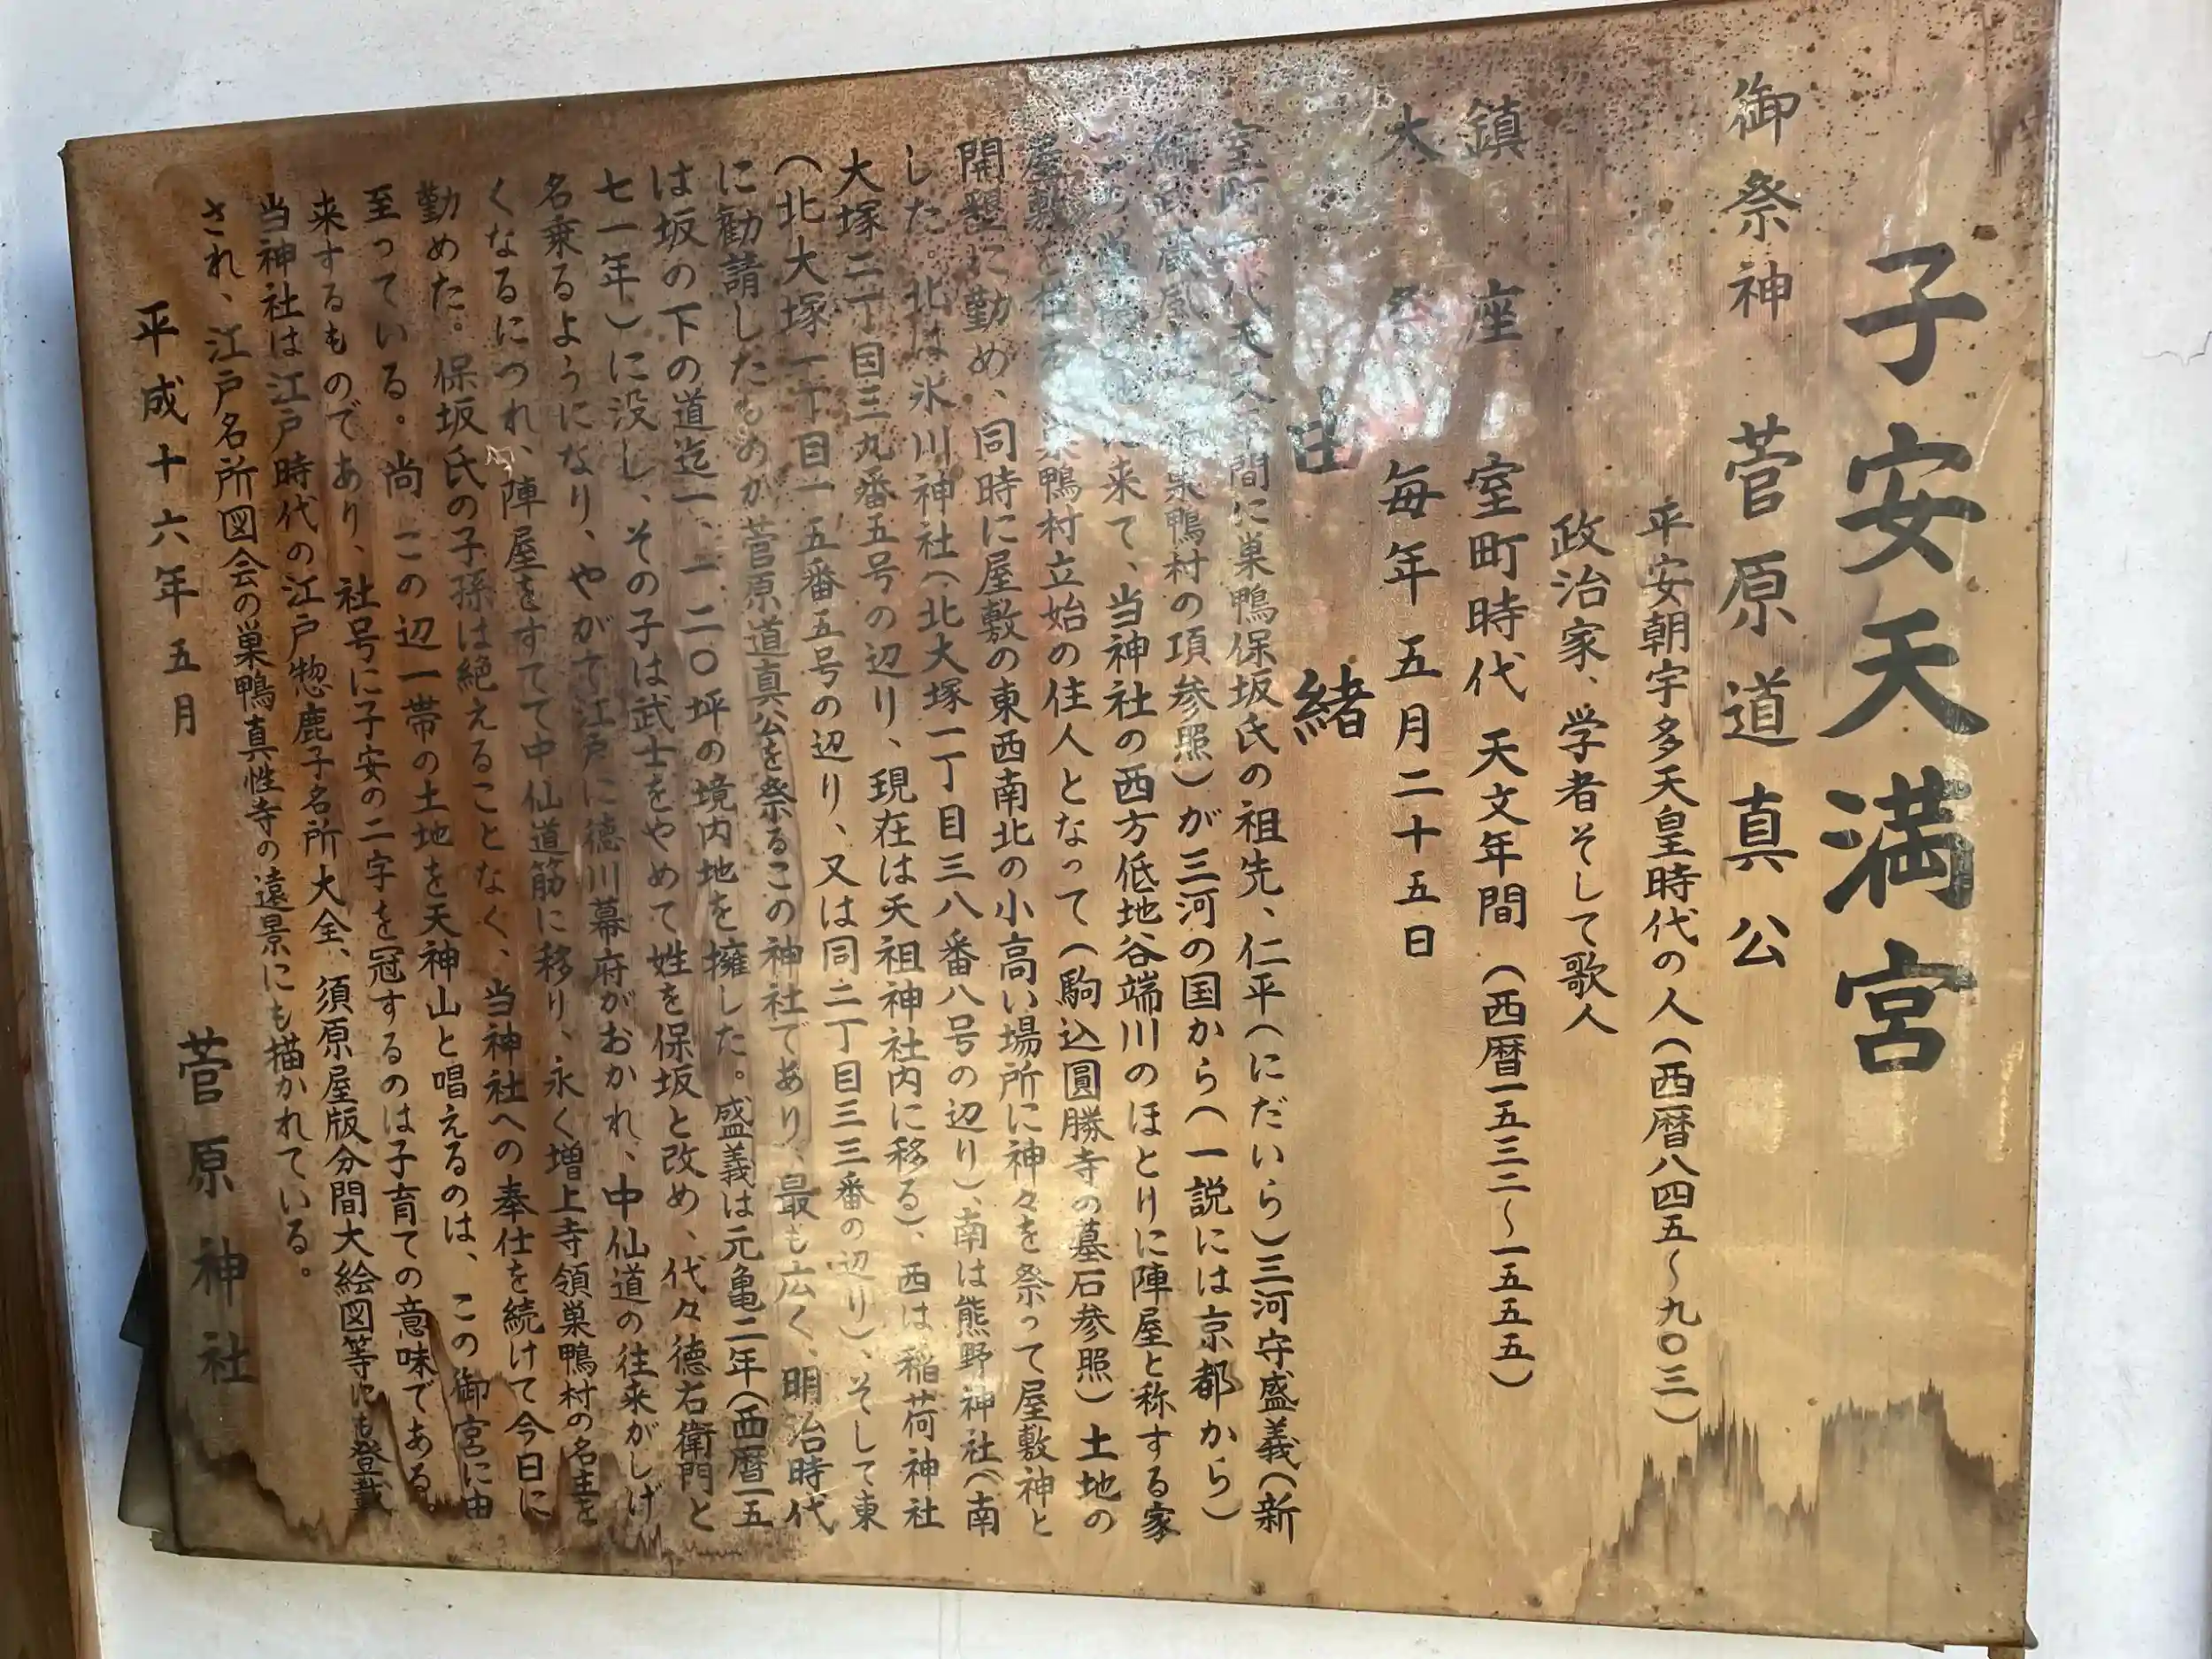 子安天満宮
御祭神 菅原道真公
平安朝宇多天皇時代の人(西暦八四五〜九〇三)
政治家、学者そして歌人
鎮座 室町時代 天文年間(西暦一五三二〜一五五五)
大祭 毎年五月二十五日
由緒
室町時代天文年間に巣鴨保坂氏の祖先、仁平(にだいら)三河守盛義(新
編武蔵風土 巣鴨村の項参照)が三河の国から(一説には京都から)
この 来て、当神社の西方低地谷端川のほとりに陣屋と称する家
屋敷を構え 巣鴨村立始の住人となって(駒込圓勝寺の墓石参照)土地の
開墾に勤め、同時に屋敷の東西南北の小高い場所に神々を祭って屋敷神と
した。北は氷川神社(北大塚一丁目三八番八号の辺り)、南は熊野神社(南
大塚二丁目三九番五号の辺り、現在は天祖神社内に移る)、西は稲荷神社
(北大塚一丁目一五番五号の辺り、又は同二丁目三三番の辺り)、そして東
に勧請したものが菅原道真公を祭るこの神社であり、最も広く、明治時代
は坂の下の道迄一、一二〇坪の境内地を擁した。盛義は元亀二年(西暦一五
七一年)に没し、その子は武士をやめて姓を保坂と改め、代々徳右衛門と
名乗るようになり、やがて江戸に徳川幕府がおかれ、中仙道の往来がしげ
くなるにつれ、陣屋をすてて中仙道筋に移り、永く増上寺領巣鴨村の名主を
勤めた。保坂氏の子孫は絶えることなく、当神社への奉仕を続けて今日に
至っている。尚この辺一帯の土地を天神山と唱えるのは、この御宮に由
来するものであり、社号に子安の二字を冠するのは子育ての意味である。
当神社は江戸時代の江戸惣鹿子名所大全、須原屋版分間大絵図等にも登載
され、江戸名所図会の巣鴨真性寺の遠景にも描かれている。
平成十六年五月
菅原神社